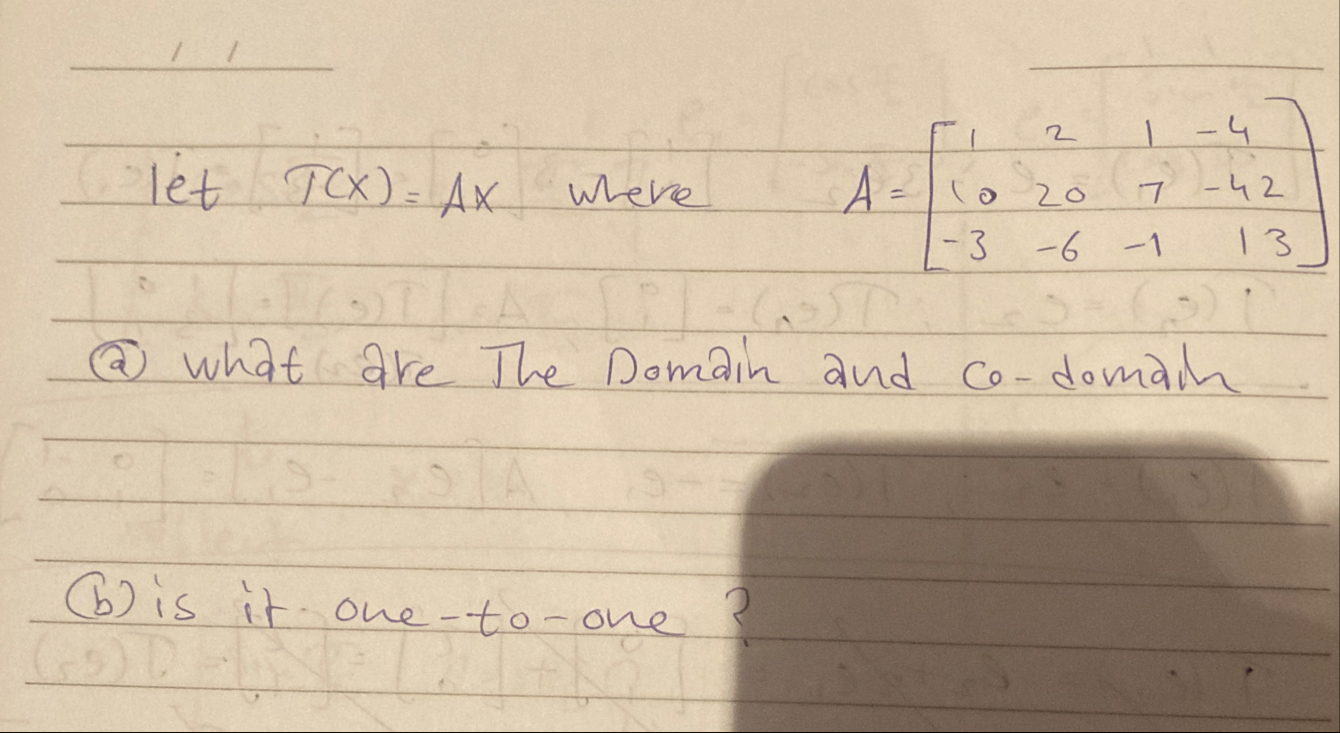 let T(X) = AX where A = [1 2 1 -4
10 20 7 -42
-3 -6 -1 13]
(a) what are The Domain and co-domain
(b) is it one-to-one ?